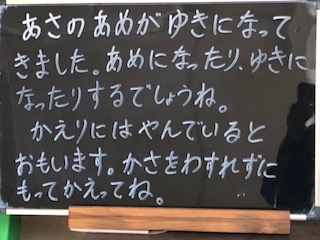 あさのあめが ゆきになって
きました。あめになったり、ゆきに
なったりするでしょうね。
かえりには やんでいると
おもいます。かさをわすれずに
もってかえってね。